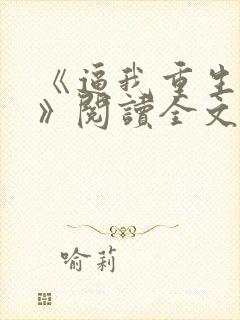 《逼我重生
》閱讀全文
喻莉